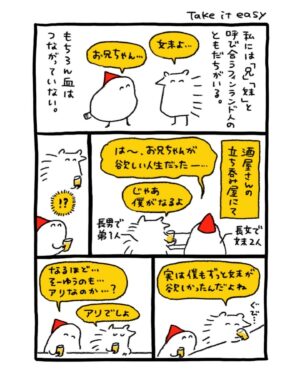 Take it easy
私には「兄」「妹」と
呼び合うフィンランド人の
ともだちがいる。
妹よ…
お兄ちゃん…
もちろん血は
つながっていない。
酒屋さんの
立ち呑み屋にて
は〜、お兄ちゃんが
欲しい人生だったー…
じゃあ
僕がなるよ
長女で
妹2人
長男で
弟1人
!?
実は僕もずっと妹が
欲しかったんだよね
ぐび…
なるほど…
そーゆうのも…
アリなのか…?
アリでしょ